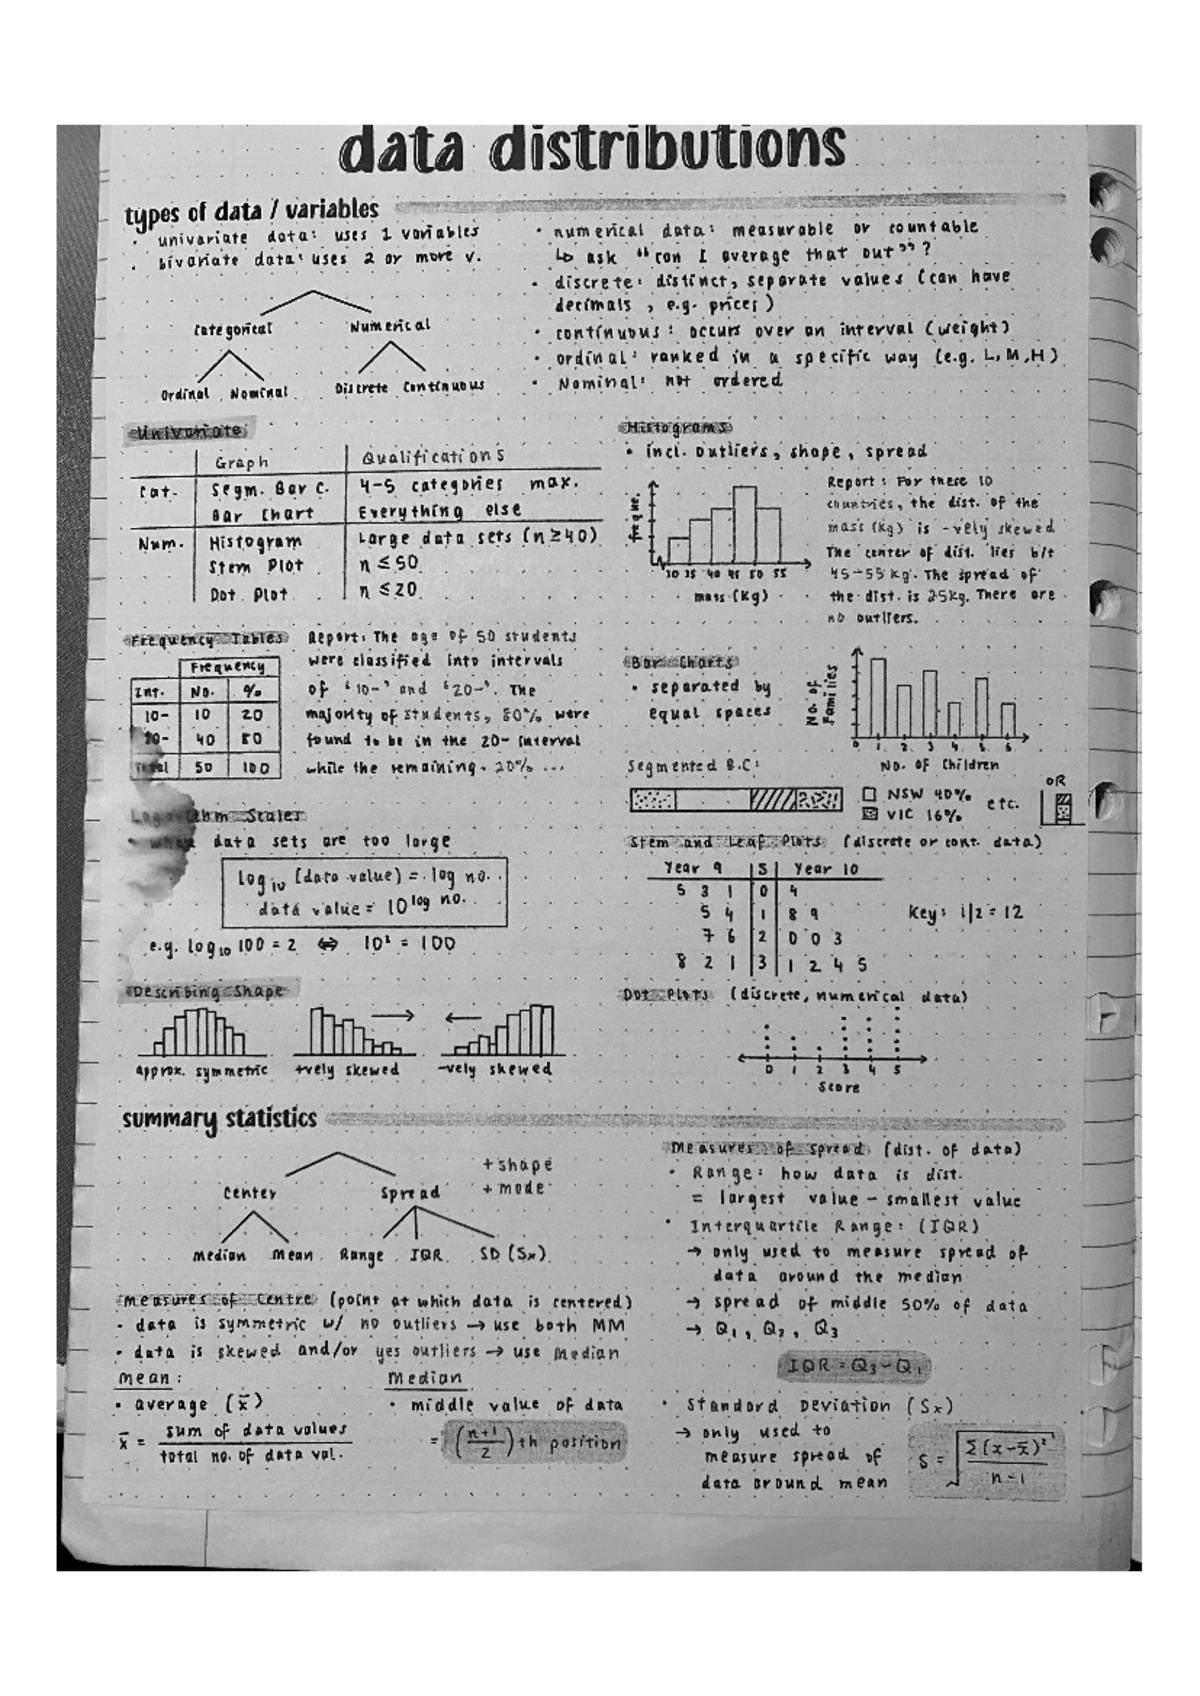 data distributions
types of data / variables
• univariate data: uses 1 variables
• bivariate data: uses 2 or more v.
Categorical Numerical
Ordinal Nominal Discrete Continuous
• numerical data: measurable or countable
↳ ask "can I average that out"?
• discrete: distinct, separate values (can have
decimals, e.g. prices)
• continuous: occurs over an interval (weight)
• ordinal: ranked in a specific way (e.g. L, M, H)
• Nominal: not ordered
Univariate
Graph Qualifications
Cat. Segm. Bar C. 4-5 categories max.
Bar Chart Everything else
Num. Histogram Large data sets (n≥40)
Stem Plot n ≤ 50
Dot Plot n ≤ 20
Histograms
• incl. outliers, shape, spread
freque.
30 35 40 45 50 55
mass (kg)
Report: For these 10
countries, the dist. of the
mass (kg) is -vely skewed
The center of dist. lies b/t
45-55 kg. The spread of
the dist. is 25kg. There are
no outliers.
Frequency Tables
Frequency
Int. No. %
10- 10 20
20- 40 80
Total 50 100
Report: The age of 50 students
were classified into intervals
of '10-' and '20-'. The
majority of students, 80% were
found to be in the 20- interval
while the remaining 20% ...
Bar Charts
• separated by
equal spaces
No. of Families
0 1 2 3 4 5 6
No. of Children
Segmented B.C:
NSW 40%
VIC 16%
etc.
OR
Logarithm Scales
• when data sets are too large
log₁₀ (data value) = log no.
data value = 10^log no.
e.g. log₁₀ 100 = 2 ⇔ 10² = 100
Stem and Leaf Plots (discrete or cont. data)
Year 9 | S | Year 10
5 3 1 | 0 | 4
5 4 | 1 | 8 9
7 6 | 2 | 0 0 3
8 2 1 | 3 | 1 2 4 5
Key: 1|2 = 12
Describing Shape
approx. symmetric +vely skewed -vely skewed
Dot Plots (discrete, numerical data)
0 1 2 3 4 5
Score
summary statistics
Center Spread
+ shape
+ mode
Median Mean Range IQR SD (Sx)
Measures of Centre (point at which data is centered)
• data is symmetric w/ no outliers → use both MM
• data is skewed and/or yes outliers → use Median
Mean:
• average (x̄)
x̄ = sum of data values / total no. of data val.
Median
• middle value of data
= (n+1/2)th position
Measures of Spread (dist. of data)
• Range: how data is dist.
= largest value - smallest value
• Interquartile Range: (IQR)
→ only used to measure spread of
data around the median
→ spread of middle 50% of data
→ Q₁, Q₂, Q₃
IQR = Q₃ - Q₁
• Standard Deviation (Sx)
→ only used to
measure spread of
data around mean
S = √(Σ(x-x̄)² / n-1)